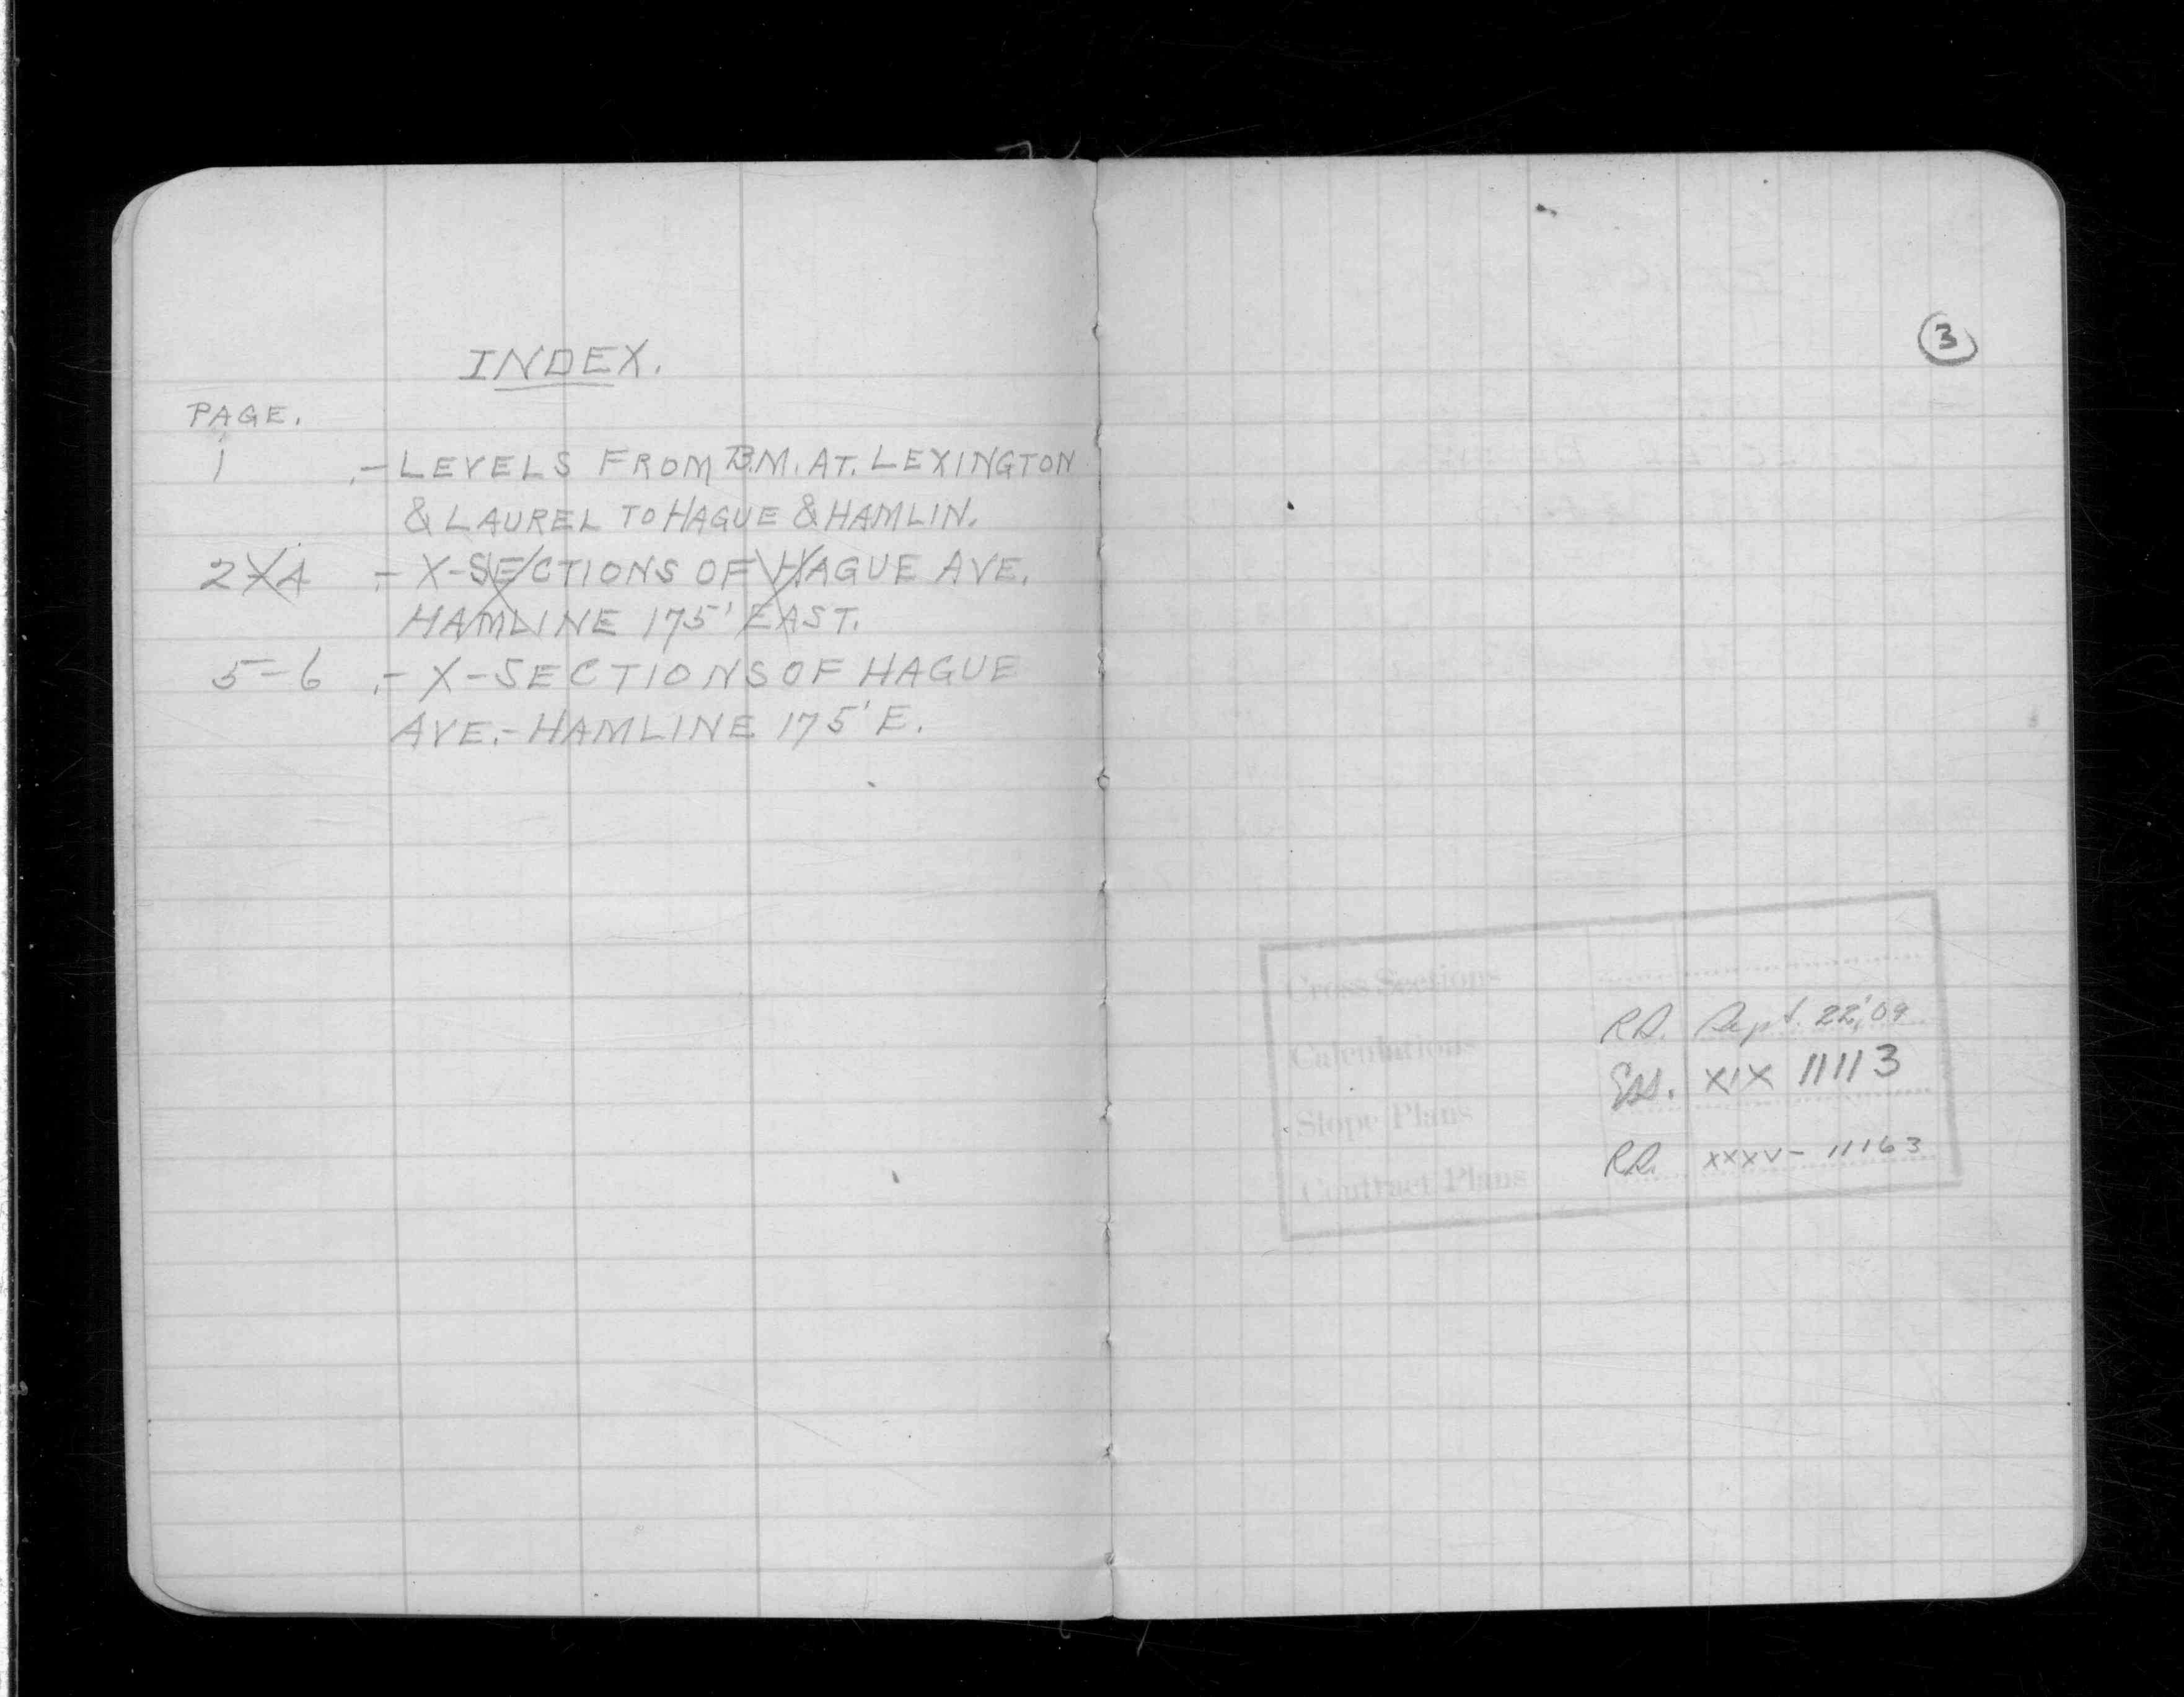 INDEX.
PAGE.
1 .- LEVELS FROM B.M. AT. LEXINGTON
& LAUREL TO HAGUE & HAMLIN.
2-4 .- X-SECTIONS OF HAGUE AVE.
HAMLINE 175' EAST.
5-6 .- X-SECTIONS OF HAGUE
AVE.- HAMLINE 175' E.
3
Cross Sections
Calculations R.D. Sept. 22,'09
XIX 11113
Slope Plans
Contract Plans R.D. XXXV- 11163